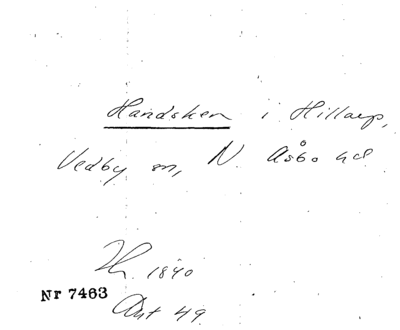 Handsken i Hillarp,
Vedby sn, N. Åsbo hd
Hs. 1840
Nr 7463
Ant 49